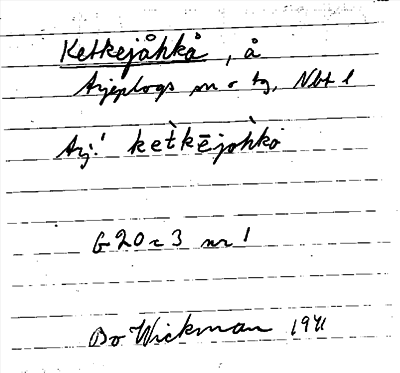 Ketkejåhkå, å
Arjeplogs sn o tg, Nbt l
Arj.' ket̀kējoh̀kå
G20c3 nr 1
Bo Wickman 1941